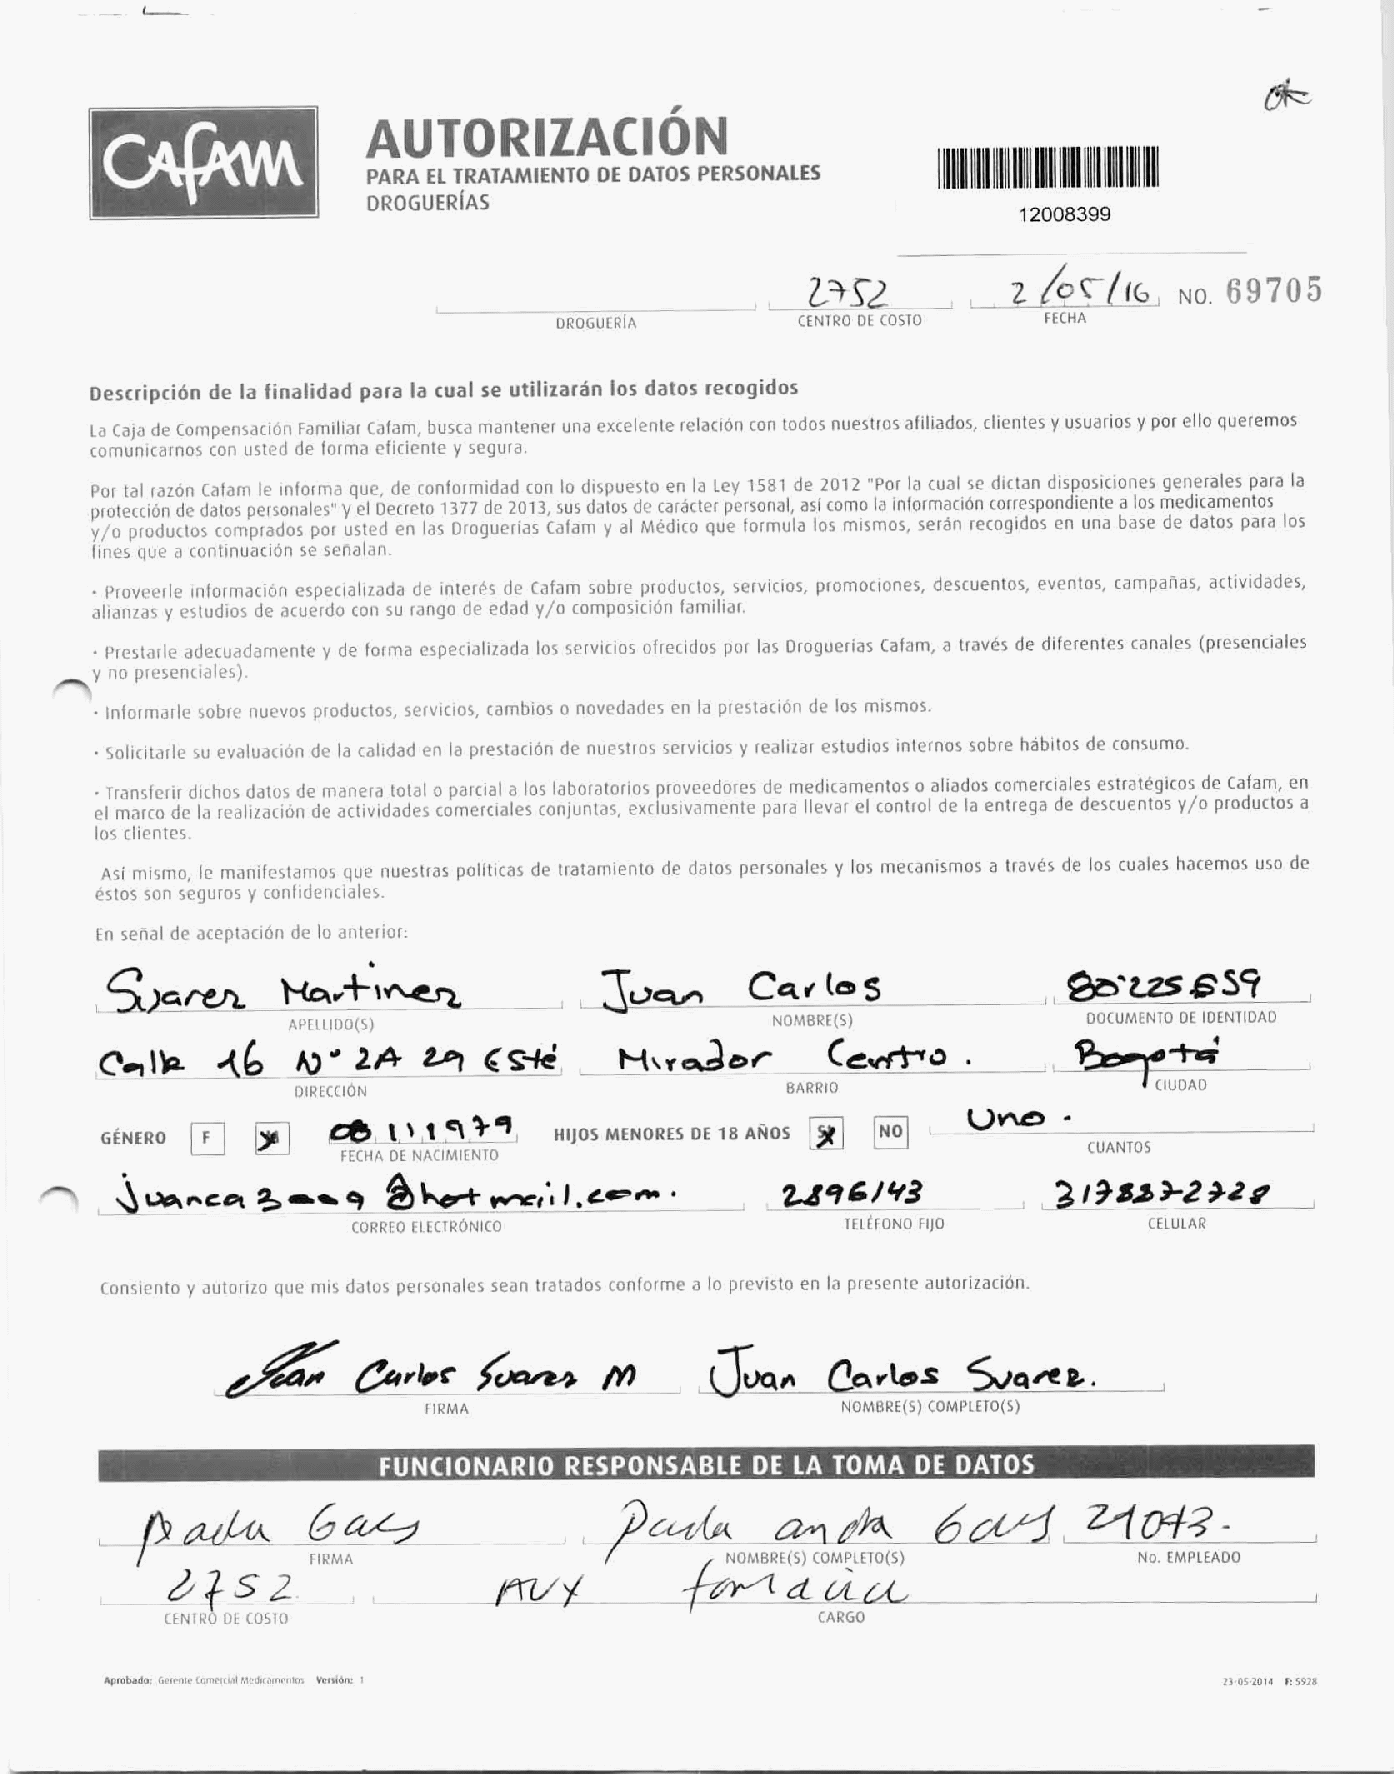 ok
CAFAM
AUTORIZACIÓN
PARA EL TRATAMIENTO DE DATOS PERSONALES
DROGUERÍAS
12008399
2752 2/05/16 NO. 69705
DROGUERÍA CENTRO DE COSTO FECHA
Descripción de la finalidad para la cual se utilizarán los datos recogidos
La Caja de Compensación Familiar Cafam, busca mantener una excelente relación con todos nuestros afiliados, clientes y usuarios y por ello queremos
comunicarnos con usted de forma eficiente y segura.
Por tal razón Cafam le informa que, de conformidad con lo dispuesto en la Ley 1581 de 2012 "Por la cual se dictan disposiciones generales para la
protección de datos personales" y el Decreto 1377 de 2013, sus datos de carácter personal, así como la información correspondiente a los medicamentos
y/o productos comprados por usted en las Droguerías Cafam y al Médico que formula los mismos, serán recogidos en una base de datos para los
fines que a continuación se señalan.
· Proveerle información especializada de interés de Cafam sobre productos, servicios, promociones, descuentos, eventos, campañas, actividades,
alianzas y estudios de acuerdo con su rango de edad y/o composición familiar.
· Prestarle adecuadamente y de forma especializada los servicios ofrecidos por las Droguerías Cafam, a través de diferentes canales (presenciales
y no presenciales).
· Informarle sobre nuevos productos, servicios, cambios o novedades en la prestación de los mismos.
· Solicitarle su evaluación de la calidad en la prestación de nuestros servicios y realizar estudios internos sobre hábitos de consumo.
· Transferir dichos datos de manera total o parcial a los laboratorios proveedores de medicamentos o aliados comerciales estratégicos de Cafam, en
el marco de la realización de actividades comerciales conjuntas, exclusivamente para llevar el control de la entrega de descuentos y/o productos a
los clientes.
Así mismo, le manifestamos que nuestras políticas de tratamiento de datos personales y los mecanismos a través de los cuales hacemos uso de
éstos son seguros y confidenciales.
En señal de aceptación de lo anterior:
Suarez Martinez Juan Carlos 80'225659
APELLIDO(S) NOMBRE(S) DOCUMENTO DE IDENTIDAD
Calle 16 N° 2A 29 Esté Mirador Centro. Bogotá
DIRECCIÓN BARRIO CIUDAD
GÉNERO F 08111979 HIJOS MENORES DE 18 AÑOS SI NO Uno.
FECHA DE NACIMIENTO CUANTOS
juanca3009@hotmail.com. 2896143 3178872728
CORREO ELECTRÓNICO TELÉFONO FIJO CELULAR
Consiento y autorizo que mis datos personales sean tratados conforme a lo previsto en la presente autorización.
Juan Carlos Suarez M Juan Carlos Suarez.
FIRMA NOMBRE(S) COMPLETO(S)
FUNCIONARIO RESPONSABLE DE LA TOMA DE DATOS
Paola 21073.
FIRMA NOMBRE(S) COMPLETO(S) No. EMPLEADO
2752 AUX
CENTRO DE COSTO CARGO
Aprobado: Gerente Comercial Medicamentos Versión: 1 23-05-2014 F: 5928